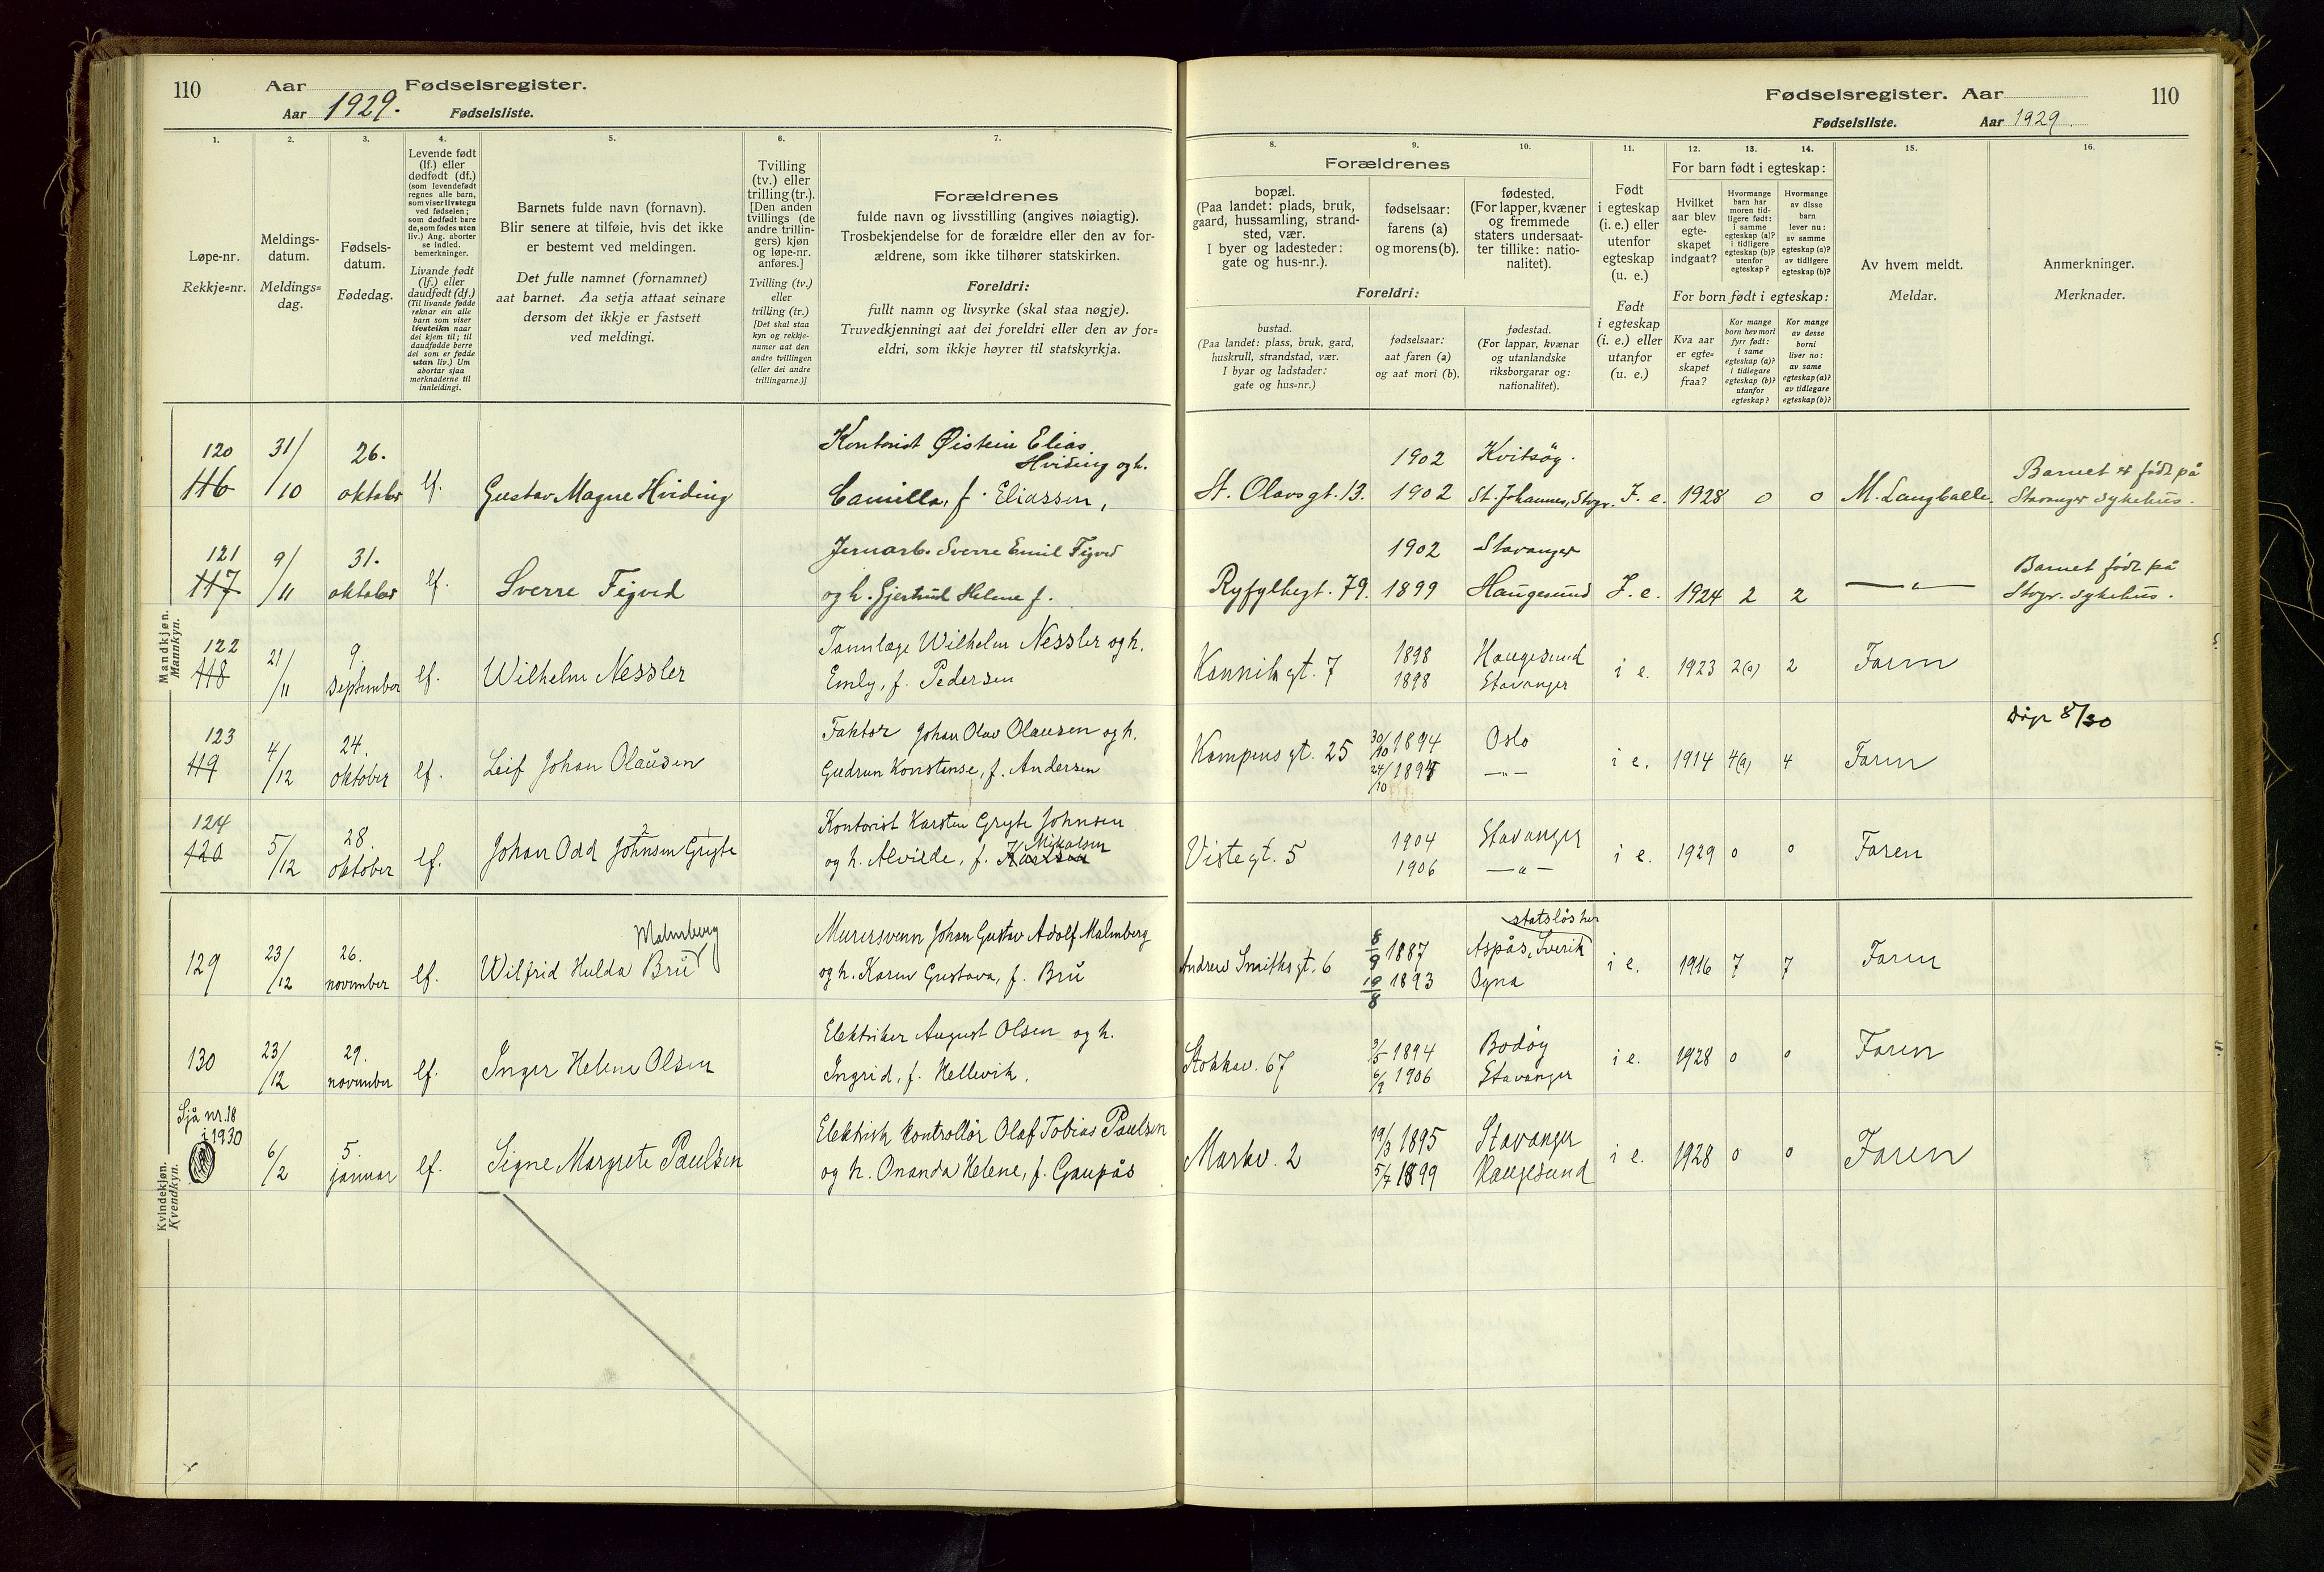 110
Aar
Fødselsregister.
Aar 1929.
Fødselsliste.
Fødselsregister. Aar
110
Fødselsliste.
Aar 1929.
1.
Løpe-nr.
Rekkje=nr.
2.
Meldings-
datum.
Meldings=
dag.
3.
Fødsels-
datum.
Fødedag.
4.
Levende født
(lf.) eller
dødfødt (df.)
(som levendefødt
regnes alle barn,
som viser livstegn
ved fødselen;
som dødfødt bare
de, som fødes uten
liv.) Ang. aborter
se indled.
bemerkninger.
Livande født
(lf.) eller
daudfødt (df.)
(Til livande fødde
reknar ein alle
barn som viser
livsteikn naar
dei kjem til; til
daudfødde berre
dei som er fødde
utan liv.) Um
abortar sjaa
merknaderne til
innleidingi.
5.
Barnets fulde navn (fornavn).
Blir senere at tilføie, hvis det ikke
er bestemt ved meldingen.
Det fulle namnet (fornamnet)
aat barnet. Aa setja attaat seinare
dersom det ikkje er fastsett
ved meldingi.
6.
Tvilling
(tv.) eller
trilling (tr.).
[Den anden
tvillings (de
andre trillin-
gers) kjøn
og løpe-nr.
anføres.]
Tvilling (tv.)
eller
trilling (tr.)
[Det skal staa
kyn og rekkje-
numer aat den
andre tvillingen
(eller dei andre
trillingarne.)]
7.
Forældrenes
fulde navn og livsstilling (angives nøiagtig).
Trosbekjendelse for de forældre eller den av for-
ældrene, som ikke tilhører statskirken.
Foreldri:
fullt namn og livsyrke (skal staa nøgje).
Truvedkjenningi aat dei foreldri eller den av for=
eldri, som ikkje høyrer til statskyrkja.
8.
9.
10.
Forældrenes
bopæl.
(Paa landet: plads, bruk,
gaard, hussamling, strand-
sted, vær.
I byer og ladesteder:
gate og hus-nr.).
fødselsaar:
farens (a)
og morens (b).
fødested.
(For lapper, kvæner
og fremmede
staters undersaat-
ter tillike: natio-
nalitet).
Foreldri:
bustad.
(Paa landet: plass, bruk, gard,
huskrull, strandstad, vær.
I byar og ladstader:
gate og hus=nr.)
fødselsaar:
aat faren (a)
og aat mori (b).
fødestad.
(For lappar, kvænar
og utanlandske
riksborgarar og:
nationalitet).
11.
Født
i egteskap
(i. e.) eller
utenfor
egteskap
(u. e.)
Født
i egteskap
(i. e.) eller
utanfor
(u. e.)
12.
13.
14.
For barn født i egteskap:
Hvilket
aar blev
egte-
skapet
indgaat?
Hvormange
barn har
moren tid-
ligere født:
i samme
egteskap (a)?
i tidligere
egteskap (b)?
utenfor
egteskap?
Hvormange
av disse
barn
lever nu:
av samme
egteskap (a)?
av tidligere
egteskap (b)?
For born født i egteskap:
Kva aar
er egte=
skapet
fraa?
Kor mange
born hev mori
fyrr født:
i same
egteskap (a)?
i tidlegare
egteskap (b)?
utanfor
egteskap?
Kor mange
av desse
borni
liver no:
av same
egteskap (a)?
av tidlegare
egteskap (b)?
15.
Av hvem meldt.
Meldar.
16.
Anmerkninger.
Merknader.
Mandkjøn.
Mannkyn.
120
116
31/10
26.
oktober
lf.
Gustav Magne Hviding
Kontorist Øistein Elias
Hviding og h.
Camilla, f. Eliassen,
St. Olavsgt. 13.
1902
1902
Kvitsøy.
St. Johannes, Stvgr.
I. e.
1928
0
0
M. Langballe.
Barnet er født på
Stavanger sykehus.
121
117
9/11
31.
oktober
lf.
Sverre Figved
Jernarb. Sverre Emil Figved
og h. Gjertrud Helene f.
Ryfylkegt. 79.
1902
1899
Stavanger
Haugesund
I. e.
1924
2
2
— " —
Barnet født på
Stvgr. sykehus.
122
118
21/11
9.
september
lf.
Wilhelm Nessler
Tannlæge Wilhelm Nessler og h.
Emly, f. Pedersen
Kannikgt. 7
1898
1898
Haugesund
Stavanger
i e.
1923
2(a)
2
Faren
123
119
4/12
24.
oktober
lf.
Leif Johan Olausen
Faktor Johan Olav Olausen og h.
Gudrun Konstanse, f. Andersen
Kampens gt. 25
30/10 1894
24/10 1894
Oslo
— " —
i e.
1914
4(a)
4
Faren
Dåp 8/30
124
120
5/12
28.
oktober
lf.
Johan Odd Johnsen Gryte
2 1
Kontorist Karsten Gryte Johnsen
Mikalsen
og h. Alvilde, f. Karlsen
Vistegt. 5
1904
1906
Stavanger
— " —
i e.
1929
0
0
Faren
129
23/12
26.
november
lf.
Malmberg
Wilfrid Hulda Bru
Murersvenn Johan Gustav Adolf Malmberg
og h. Karen Gustava, f. Bru
Andrew Smithsgt. 6
8/9 1887
19/8 1893
statsløs her
Aspås, Sverik
Ogna
i e.
1916
7
7
Faren
130
23/12
29.
november
lf.
Inger Helene Olsen
Elektriker August Olsen og h.
Ingrid, f. Hellevik.
Stokkav. 67
3/5 1894
6/9 1906
Bodøy
Stavanger
i e.
1928
0
0
Faren
Kvindekjøn.
Kvendkyn.
Sjå nr. 18
i 1930
6/2
5.
januar
lf.
Signe Margrete Paulsen
Elektrisk kontrollør Olaf Tobias Paulsen
og h. Ananda Helene, f. Gaupås
Markv. 2
19/3 1895
5/7 1899
Stavanger
Haugesund
i e.
1928
0
0
Faren